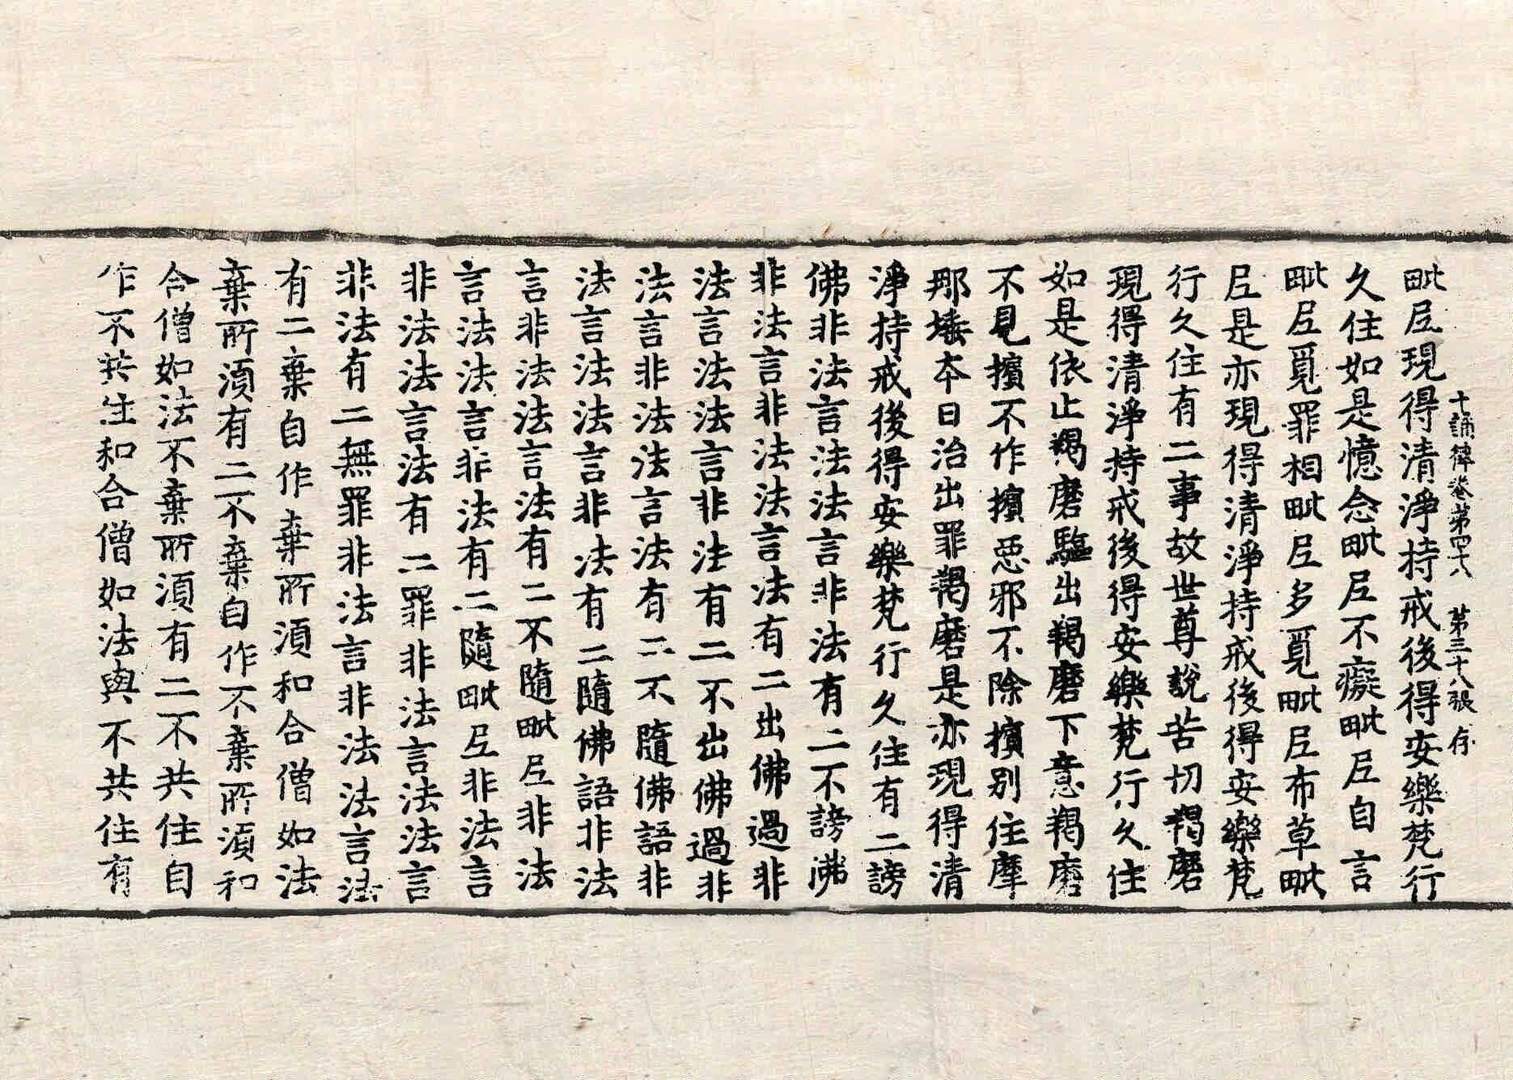 十誦律卷第四十八　第三十八張　存
毗尼現得清淨持戒後得安樂梵行
久住如是憶念毗尼不癡毗尼自言
毗尼覓罪相毗尼多覓毗尼布草毗
尼是亦現得清淨持戒後得安樂梵
行久住有二事故世尊說苦切羯磨
現得清淨持戒後得安樂梵行久住
如是依止羯磨驅出羯磨下意羯磨
不見擯不作擯惡邪不除擯別住摩
那埵本日治出罪羯磨是亦現得清
淨持戒後得安樂梵行久住有二謗
佛非法言法法言非法有二不謗佛
非法言非法法言法有二出佛過非
法言法法言非法有二不出佛過非
法言非法法言法有二不隨佛語非
法言法法言非法有二隨佛語非法
言非法法言法有二不隨毗尼非法
言法法言非法有二隨毗尼非法言
非法法言法有二罪非法言法法言
非法有二無罪非法言非法法言法
有二棄自作棄所須和合僧如法
棄所須有二不棄自作不棄所須和
合僧如法不棄所須有二不共住自
作不共住和合僧如法與不共住有